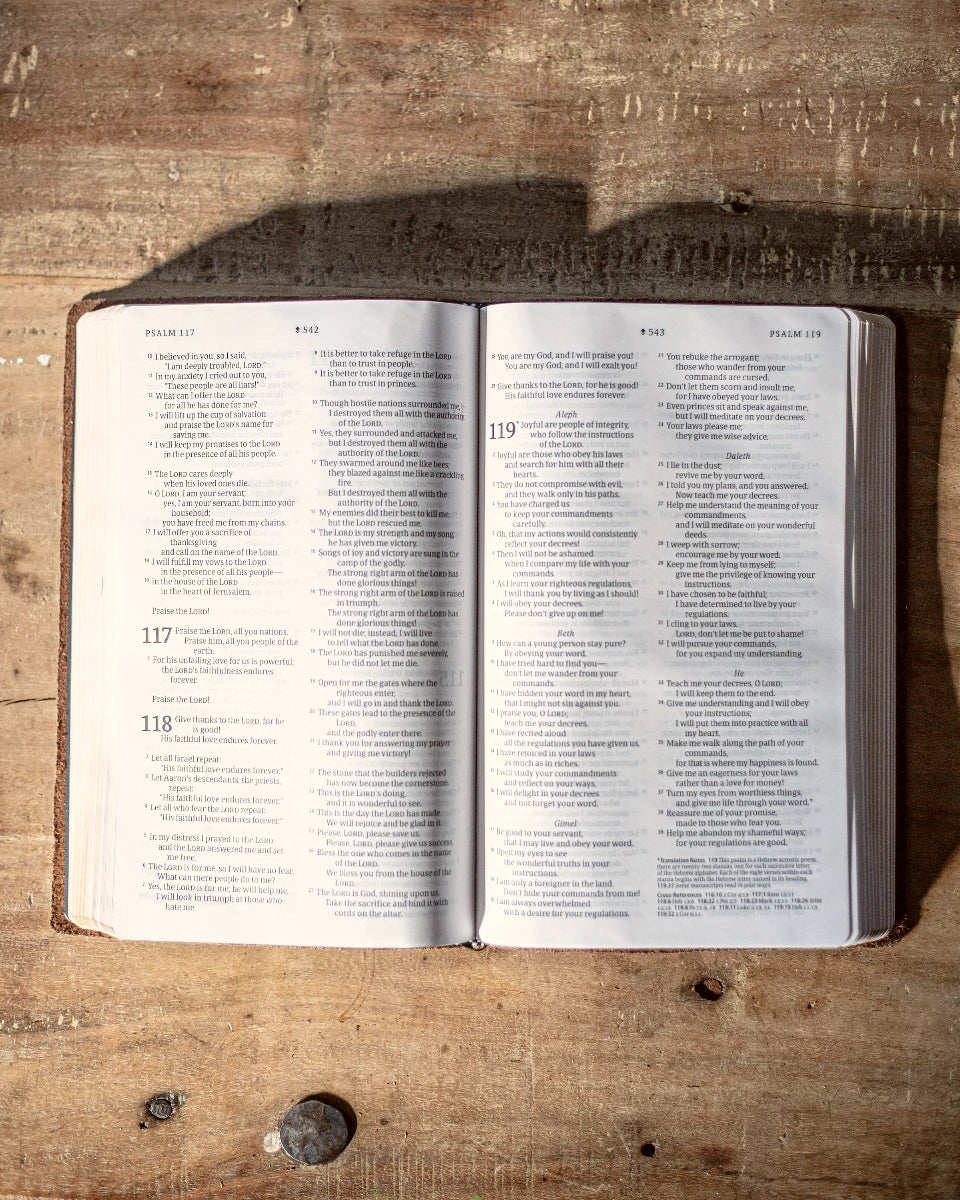 PSALM 117
542
10 I believed in you, so I said,
"I am deeply troubled, LORD."
11 In my anxiety I cried out to you,
"These people are all liars!"
12 What can I offer the LORD
for all he has done for me?
13 I will lift up the cup of salvation
and praise the LORD's name for
saving me.
14 I will keep my promises to the LORD
in the presence of all his people.
15 The LORD cares deeply
when his loved ones die.
16 O LORD, I am your servant;
yes, I am your servant, born into your
household;
you have freed me from my chains.
17 I will offer you a sacrifice of
thanksgiving
and call on the name of the LORD.
18 I will fulfill my vows to the LORD
in the presence of all his people—
19 in the house of the LORD
in the heart of Jerusalem.
Praise the LORD!
117 Praise the LORD, all you nations.
Praise him, all you people of the
earth.
2 For his unfailing love for us is powerful;
the LORD's faithfulness endures
forever.
Praise the LORD!
118 Give thanks to the LORD, for he
is good!
His faithful love endures forever.
2 Let all Israel repeat:
"His faithful love endures forever."
3 Let Aaron's descendants, the priests,
repeat:
"His faithful love endures forever."
4 Let all who fear the LORD repeat:
"His faithful love endures forever."
5 In my distress I prayed to the LORD,
and the LORD answered me and set
me free.
6 The LORD is for me, so I will have no fear.
What can mere people do to me?
7 Yes, the LORD is for me; he will help me.
I will look in triumph at those who
hate me.
8 It is better to take refuge in the LORD
than to trust in people.
9 It is better to take refuge in the LORD
than to trust in princes.
10 Though hostile nations surrounded me,
I destroyed them all with the authority
of the LORD.
11 Yes, they surrounded and attacked me,
but I destroyed them all with the
authority of the LORD.
12 They swarmed around me like bees;
they blazed against me like a crackling
fire.
But I destroyed them all with the
authority of the LORD.
13 My enemies did their best to kill me,
but the LORD rescued me.
14 The LORD is my strength and my song;
he has given me victory.
15 Songs of joy and victory are sung in the
camp of the godly.
The strong right arm of the LORD has
done glorious things!
16 The strong right arm of the LORD is raised
in triumph.
The strong right arm of the LORD has
done glorious things!
17 I will not die; instead, I will live
to tell what the LORD has done.
18 The LORD has punished me severely,
but he did not let me die.
19 Open for me the gates where the
righteous enter,
and I will go in and thank the LORD.
20 These gates lead to the presence of the
LORD,
and the godly enter there.
21 I thank you for answering my prayer
and giving me victory!
22 The stone that the builders rejected
has now become the cornerstone.
23 This is the LORD's doing,
and it is wonderful to see.
24 This is the day the LORD has made.
We will rejoice and be glad in it.
25 Please, LORD, please save us.
Please, LORD, please give us success.
26 Bless the one who comes in the name
of the LORD.
We bless you from the house of the
LORD.
27 The LORD is God, shining upon us.
Take the sacrifice and bind it with
cords on the altar.
543
PSALM 119
28 You are my God, and I will praise you!
You are my God, and I will exalt you!
29 Give thanks to the LORD, for he is good!
His faithful love endures forever.
Aleph
119 * Joyful are people of integrity,
who follow the instructions
of the LORD.
2 Joyful are those who obey his laws
and search for him with all their
hearts.
3 They do not compromise with evil,
and they walk only in his paths.
4 You have charged us
to keep your commandments
carefully.
5 Oh, that my actions would consistently
reflect your decrees!
6 Then I will not be ashamed
when I compare my life with your
commands.
7 As I learn your righteous regulations,
I will thank you by living as I should!
8 I will obey your decrees.
Please don't give up on me!
Beth
9 How can a young person stay pure?
By obeying your word.
10 I have tried hard to find you—
don't let me wander from your
commands.
11 I have hidden your word in my heart,
that I might not sin against you.
12 I praise you, O LORD;
teach me your decrees.
13 I have recited aloud
all the regulations you have given us.
14 I have rejoiced in your laws
as much as in riches.
15 I will study your commandments
and reflect on your ways.
16 I will delight in your decrees
and not forget your word.
Gimel
17 Be good to your servant,
that I may live and obey your word.
18 Open my eyes to see
the wonderful truths in your
instructions.
19 I am only a foreigner in the land.
Don't hide your commands from me!
20 I am always overwhelmed
with a desire for your regulations.
21 You rebuke the arrogant;
those who wander from your
commands are cursed.
22 Don't let them scorn and insult me,
for I have obeyed your laws.
23 Even princes sit and speak against me,
but I will meditate on your decrees.
24 Your laws please me;
they give me wise advice.
Daleth
25 I lie in the dust;
revive me by your word.
26 I told you my plans, and you answered.
Now teach me your decrees.
27 Help me understand the meaning of your
commandments,
and I will meditate on your wonderful
deeds.
28 I weep with sorrow;
encourage me by your word.
29 Keep me from lying to myself;
give me the privilege of knowing your
instructions.
30 I have chosen to be faithful;
I have determined to live by your
regulations.
31 I cling to your laws.
LORD, don't let me be put to shame!
32 I will pursue your commands,
for you expand my understanding.
He
33 Teach me your decrees, O LORD;
I will keep them to the end.
34 Give me understanding and I will obey
your instructions;
I will put them into practice with all
my heart.
35 Make me walk along the path of your
commands,
for that is where my happiness is found.
36 Give me an eagerness for your laws
rather than a love for money!
37 Turn my eyes from worthless things,
and give me life through your word.*
38 Reassure me of your promise,
made to those who fear you.
39 Help me abandon my shameful ways;
for your regulations are good.
*Translation Notes 119 This psalm is a Hebrew acrostic poem;
there are twenty-two stanzas, one for each successive letter
of the Hebrew alphabet. Each of the eight verses within each
stanza begins with the Hebrew letter named in its heading.
119:37 Some manuscripts read in your ways.
Cross-References 116:10 2 Cor 4:13 117:1 Rom 15:11
118:6 Heb 13:6 118:22 1 Pet 2:7 118:23 Mark 12:11 118:26 John